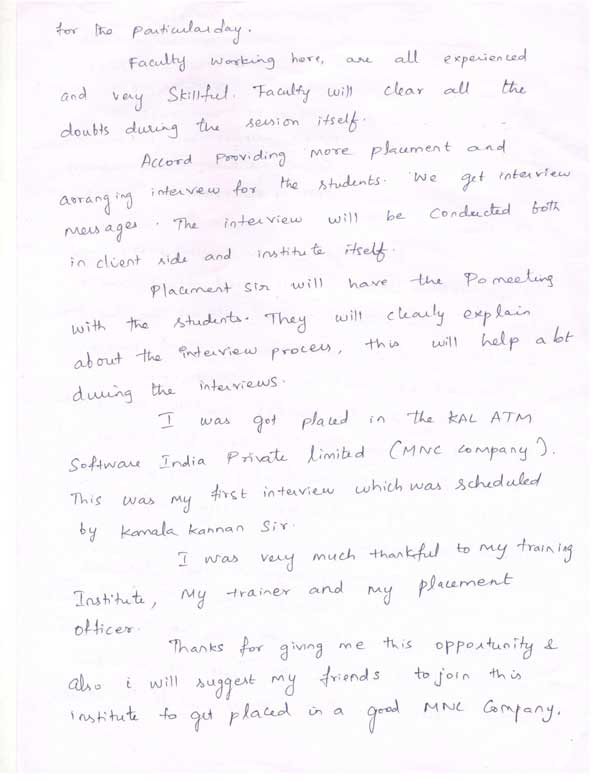 for the particular day.
Faculty working here, are all experienced
and very Skillful. Faculty will clear all the
doubts during the session itself.
Accord Providing More placement and
arranging interview for the students. We get interview
messages. The interview will be Conducted both
in client side and institute itself.
Placement Sir will have the Po meeting
with the students. They will clearly explain
about the interview process, this will help a lot
during the interviews.
I was got placed in the KAL ATM
Software India Private limited (MNC Company).
This was my first interview which was scheduled
by Kamala Kannan Sir.
I was very much thankful to my training
Institute, My trainer and my placement
officer.
Thanks for giving me this opportunity &
also i will suggest my friends to join this
institute to get placed in a good MNC Company.